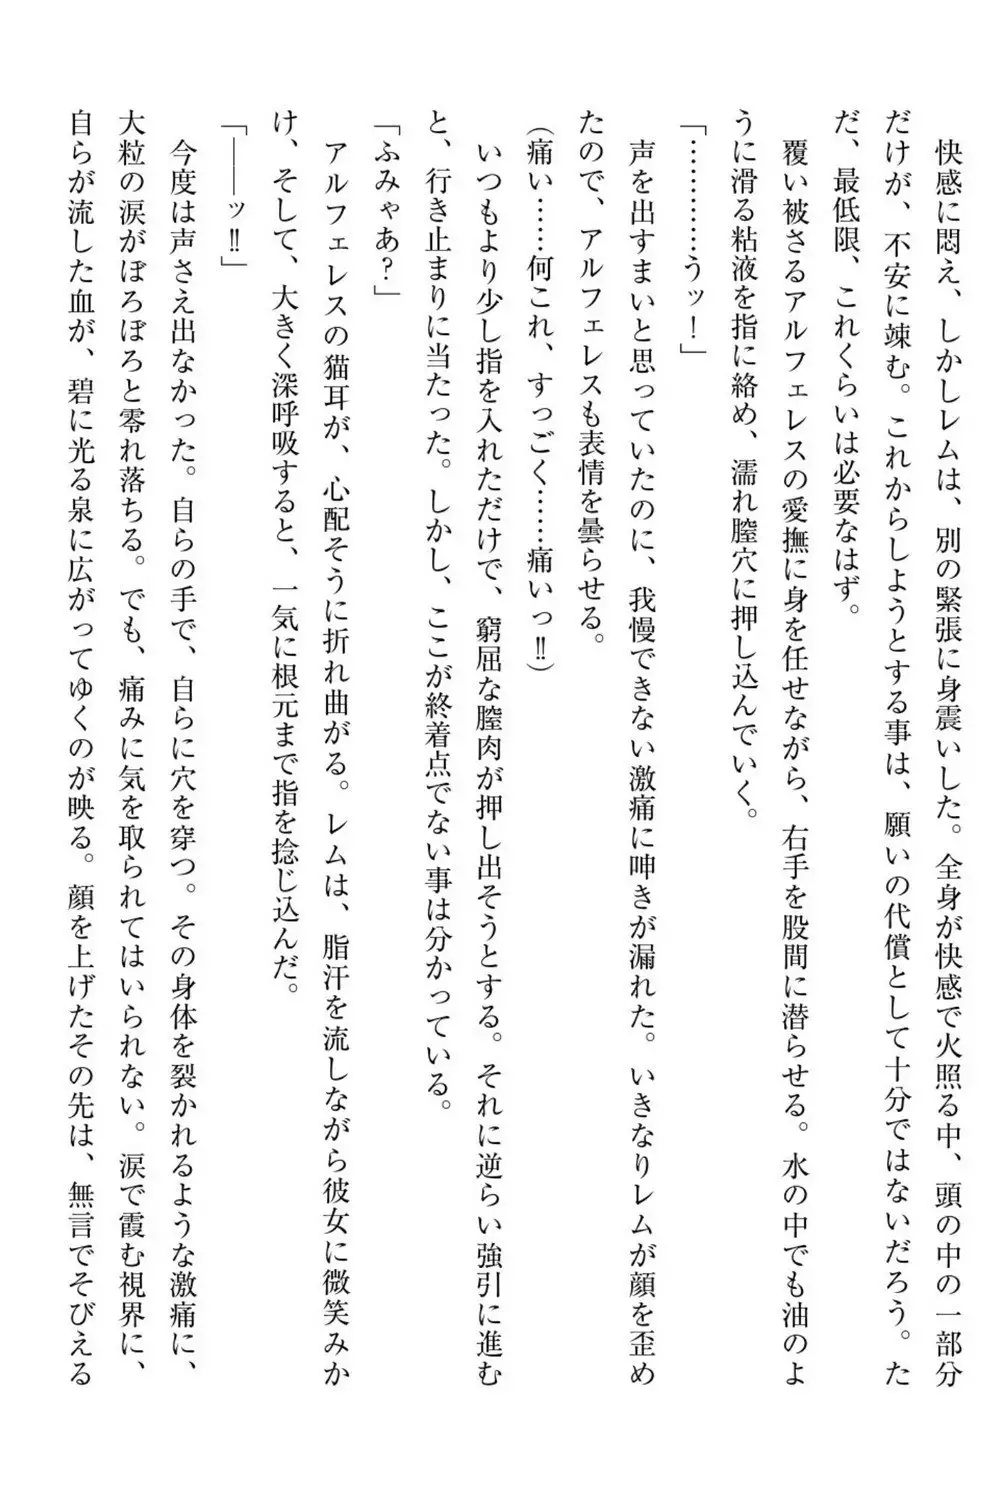 快感に悶え、しかしレムは、別の緊張に身震いした。全身が快感で火照る中、頭の中の一部分
だけが、不安に竦む。これからしようとする事は、願いの代償として十分ではないだろう。た
だ、最低限、これくらいは必要なはず。
覆い被さるアルフェレスの愛撫に身を任せながら、右手を股間に潜らせる。水の中でも油のよ
うに滑る粘液を指に絡め、濡れ膣穴に押し込んでいく。
「…………うッ！」
声を出すまいと思っていたのに、我慢できない激痛に呻きが漏れた。いきなりレムが顔を歪め
たので、アルフェレスも表情を曇らせる。
（痛い……何これ、すっごく……痛いっ‼）
いつもより少し指を入れただけで、窮屈な膣肉が押し出そうとする。それに逆らい強引に進む
と、行き止まりに当たった。しかし、ここが終着点でない事は分かっている。
「ふみゃあ？」
アルフェレスの猫耳が、心配そうに折れ曲がる。レムは、脂汗を流しながら彼女に微笑みか
け、そして、大きく深呼吸すると、一気に根元まで指を捻じ込んだ。
「――ッ‼」
今度は声さえ出なかった。自らの手で、自らに穴を穿つ。その身体を裂かれるような激痛に、
大粒の涙がぼろぼろと零れ落ちる。でも、痛みに気を取られてはいられない。涙で霞む視界に、
自らが流した血が、碧に光る泉に広がってゆくのが映る。顔を上げたその先は、無言でそびえる